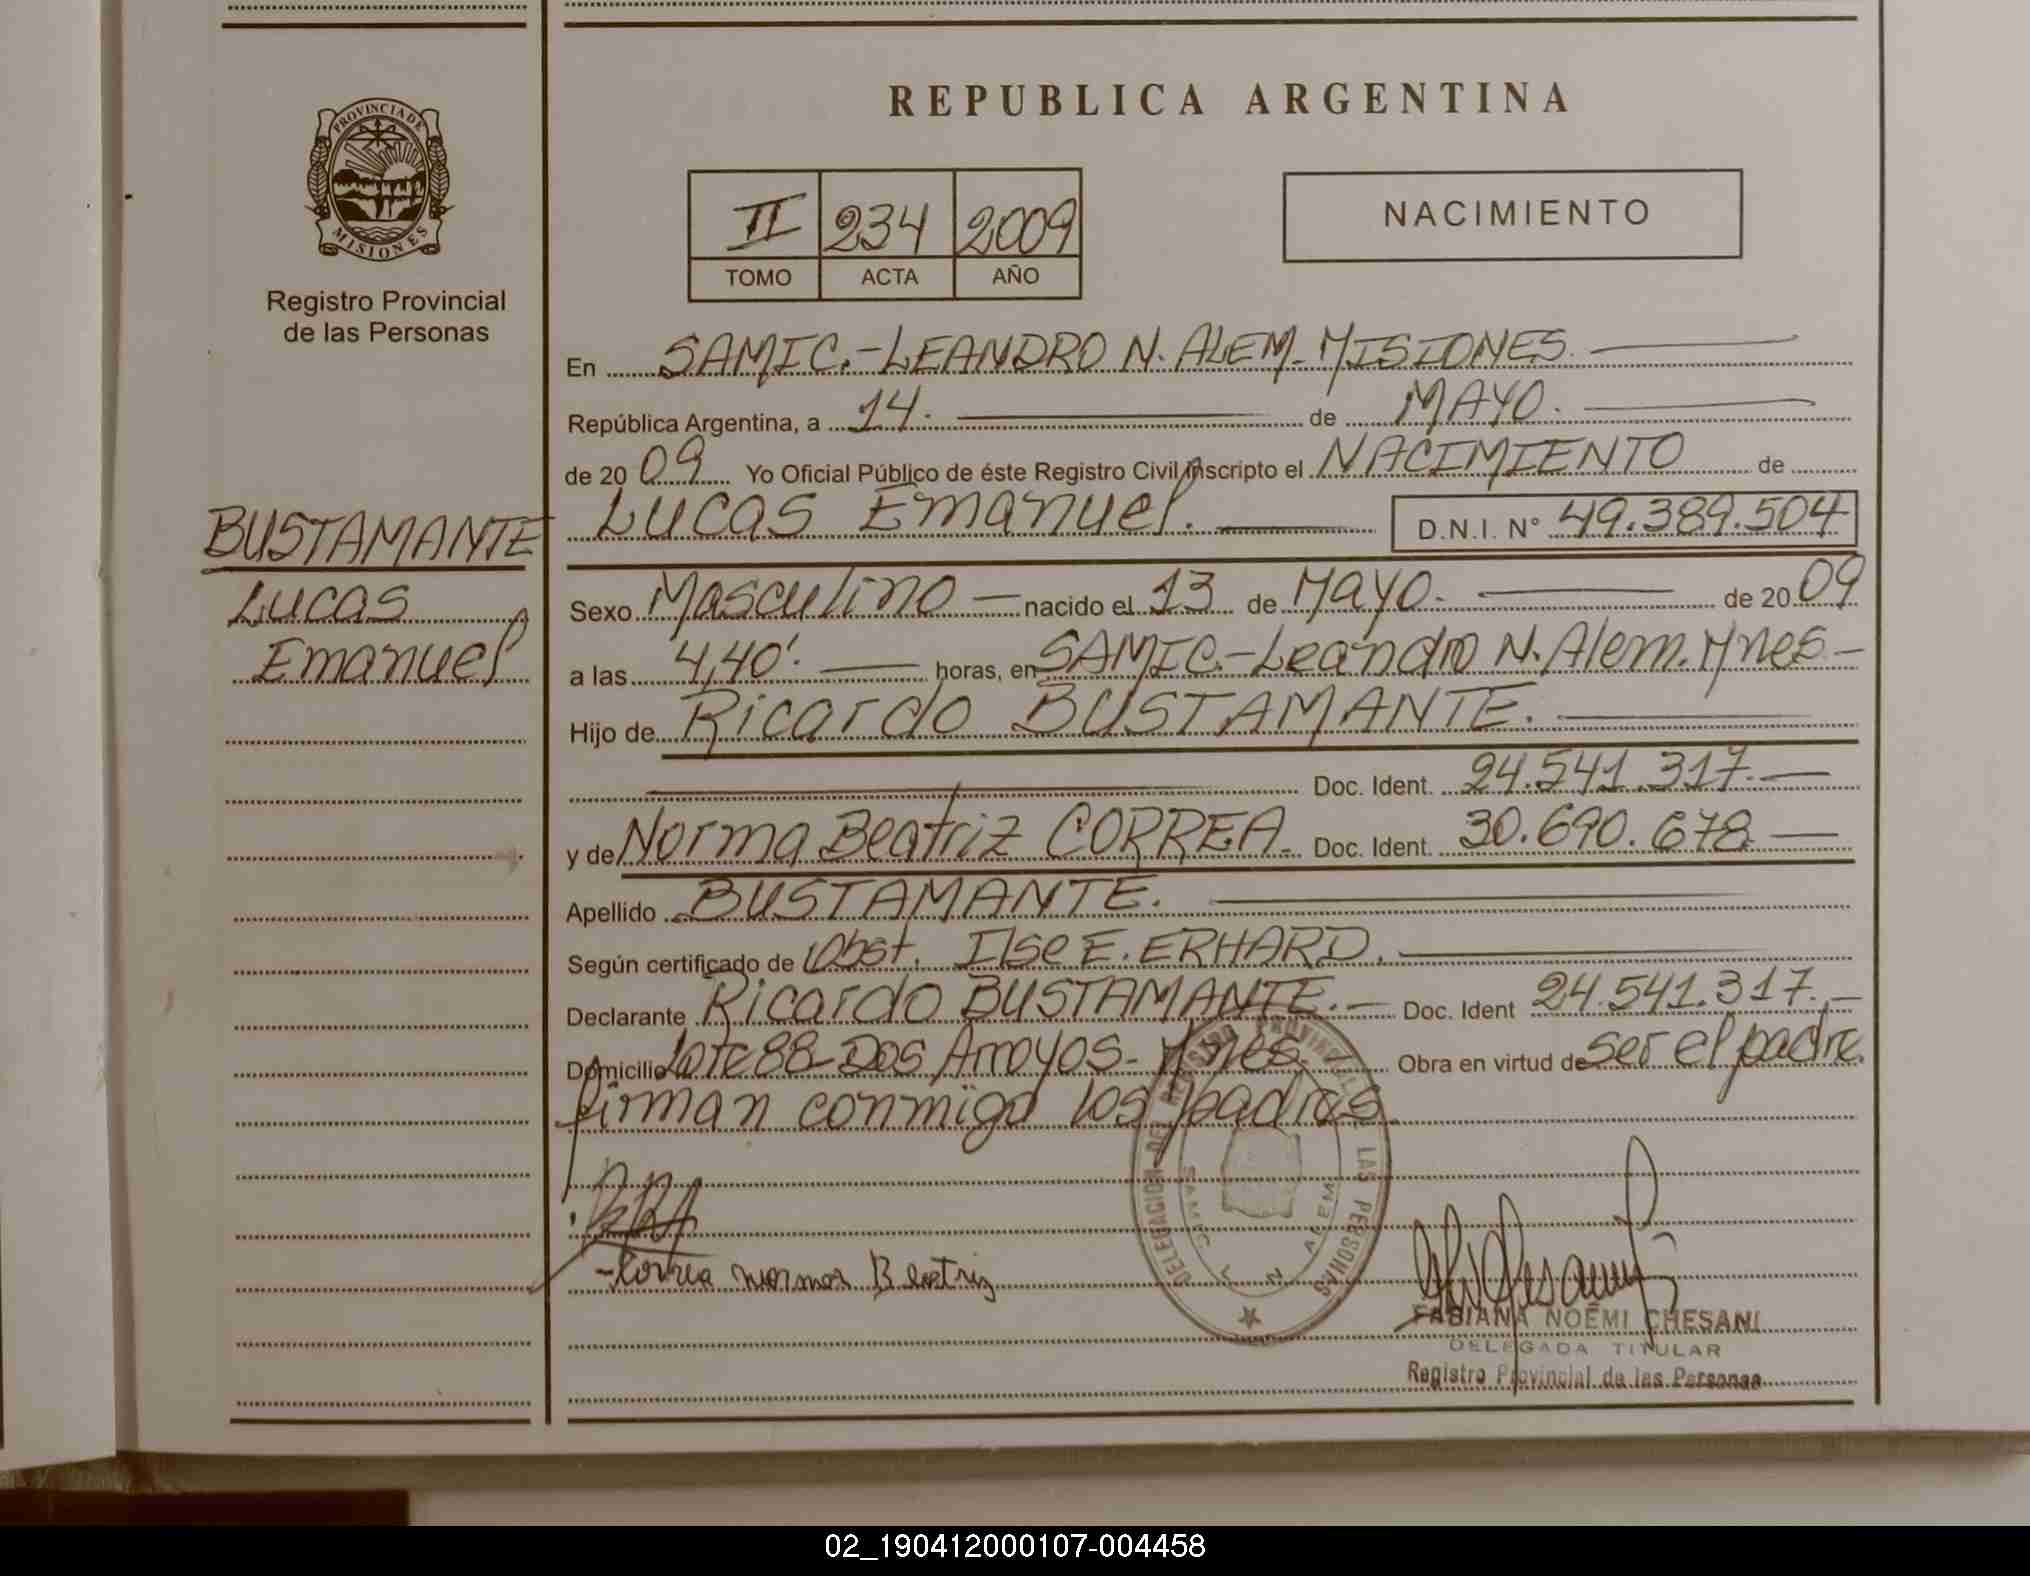 REPUBLICA ARGENTINA
PROVINCIA DE
MISIONES
Registro Provincial
de las Personas
II 234 2009
TOMO ACTA AÑO
NACIMIENTO
En SAMIC.-LEANDRO N. ALEM-MISIONES.
República Argentina, a 14. de MAYO.
de 2009 Yo Oficial Público de éste Registro Civil inscripto el NACIMIENTO de
BUSTAMANTE
Lucas
Emanuel
Lucas Emanuel. D.N.I. N° 49.389.504
Sexo Masculino - nacido el 13 de MAYO. de 2009
a las 4,40'. horas, en SAMIC.-Leandro N. Alem. Mnes-
Hijo de Ricardo BUSTAMANTE.
Doc. Ident. 24.541.317.
y de Norma Beatriz CORREA. Doc. Ident. 30.690.678
Apellido BUSTAMANTE.
Según certificado de Obst. Ilse E. ERHARD.
Declarante Ricardo BUSTAMANTE.- Doc. Ident 24.541.317.-
Domicilio Lote 88-Dos Arroyos-Mnes.- Obra en virtud de ser el padre.
firman conmigo los padres
DELEGACION DEL REGISTRO PROVINCIAL DE LAS PERSONAS
SAMIC L N ALEM
-Correa norma Beatriz
FABIANA NOEMI CHESANI
DELEGADA TITULAR
Registro Provincial de las Personas
02_190412000107-004458